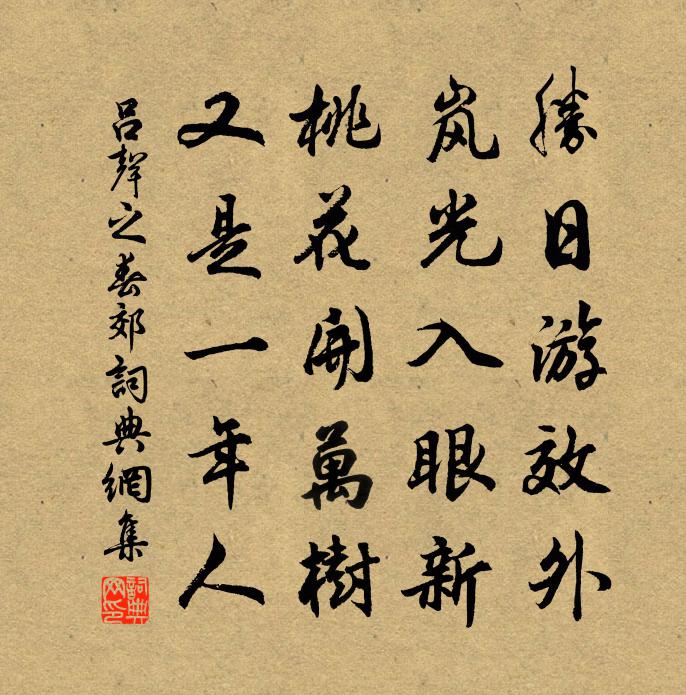 勝日游效外
岚光入眼新
桃花開萬樹
又是一年人
吕聲之春郊詞典網集
詞典网印